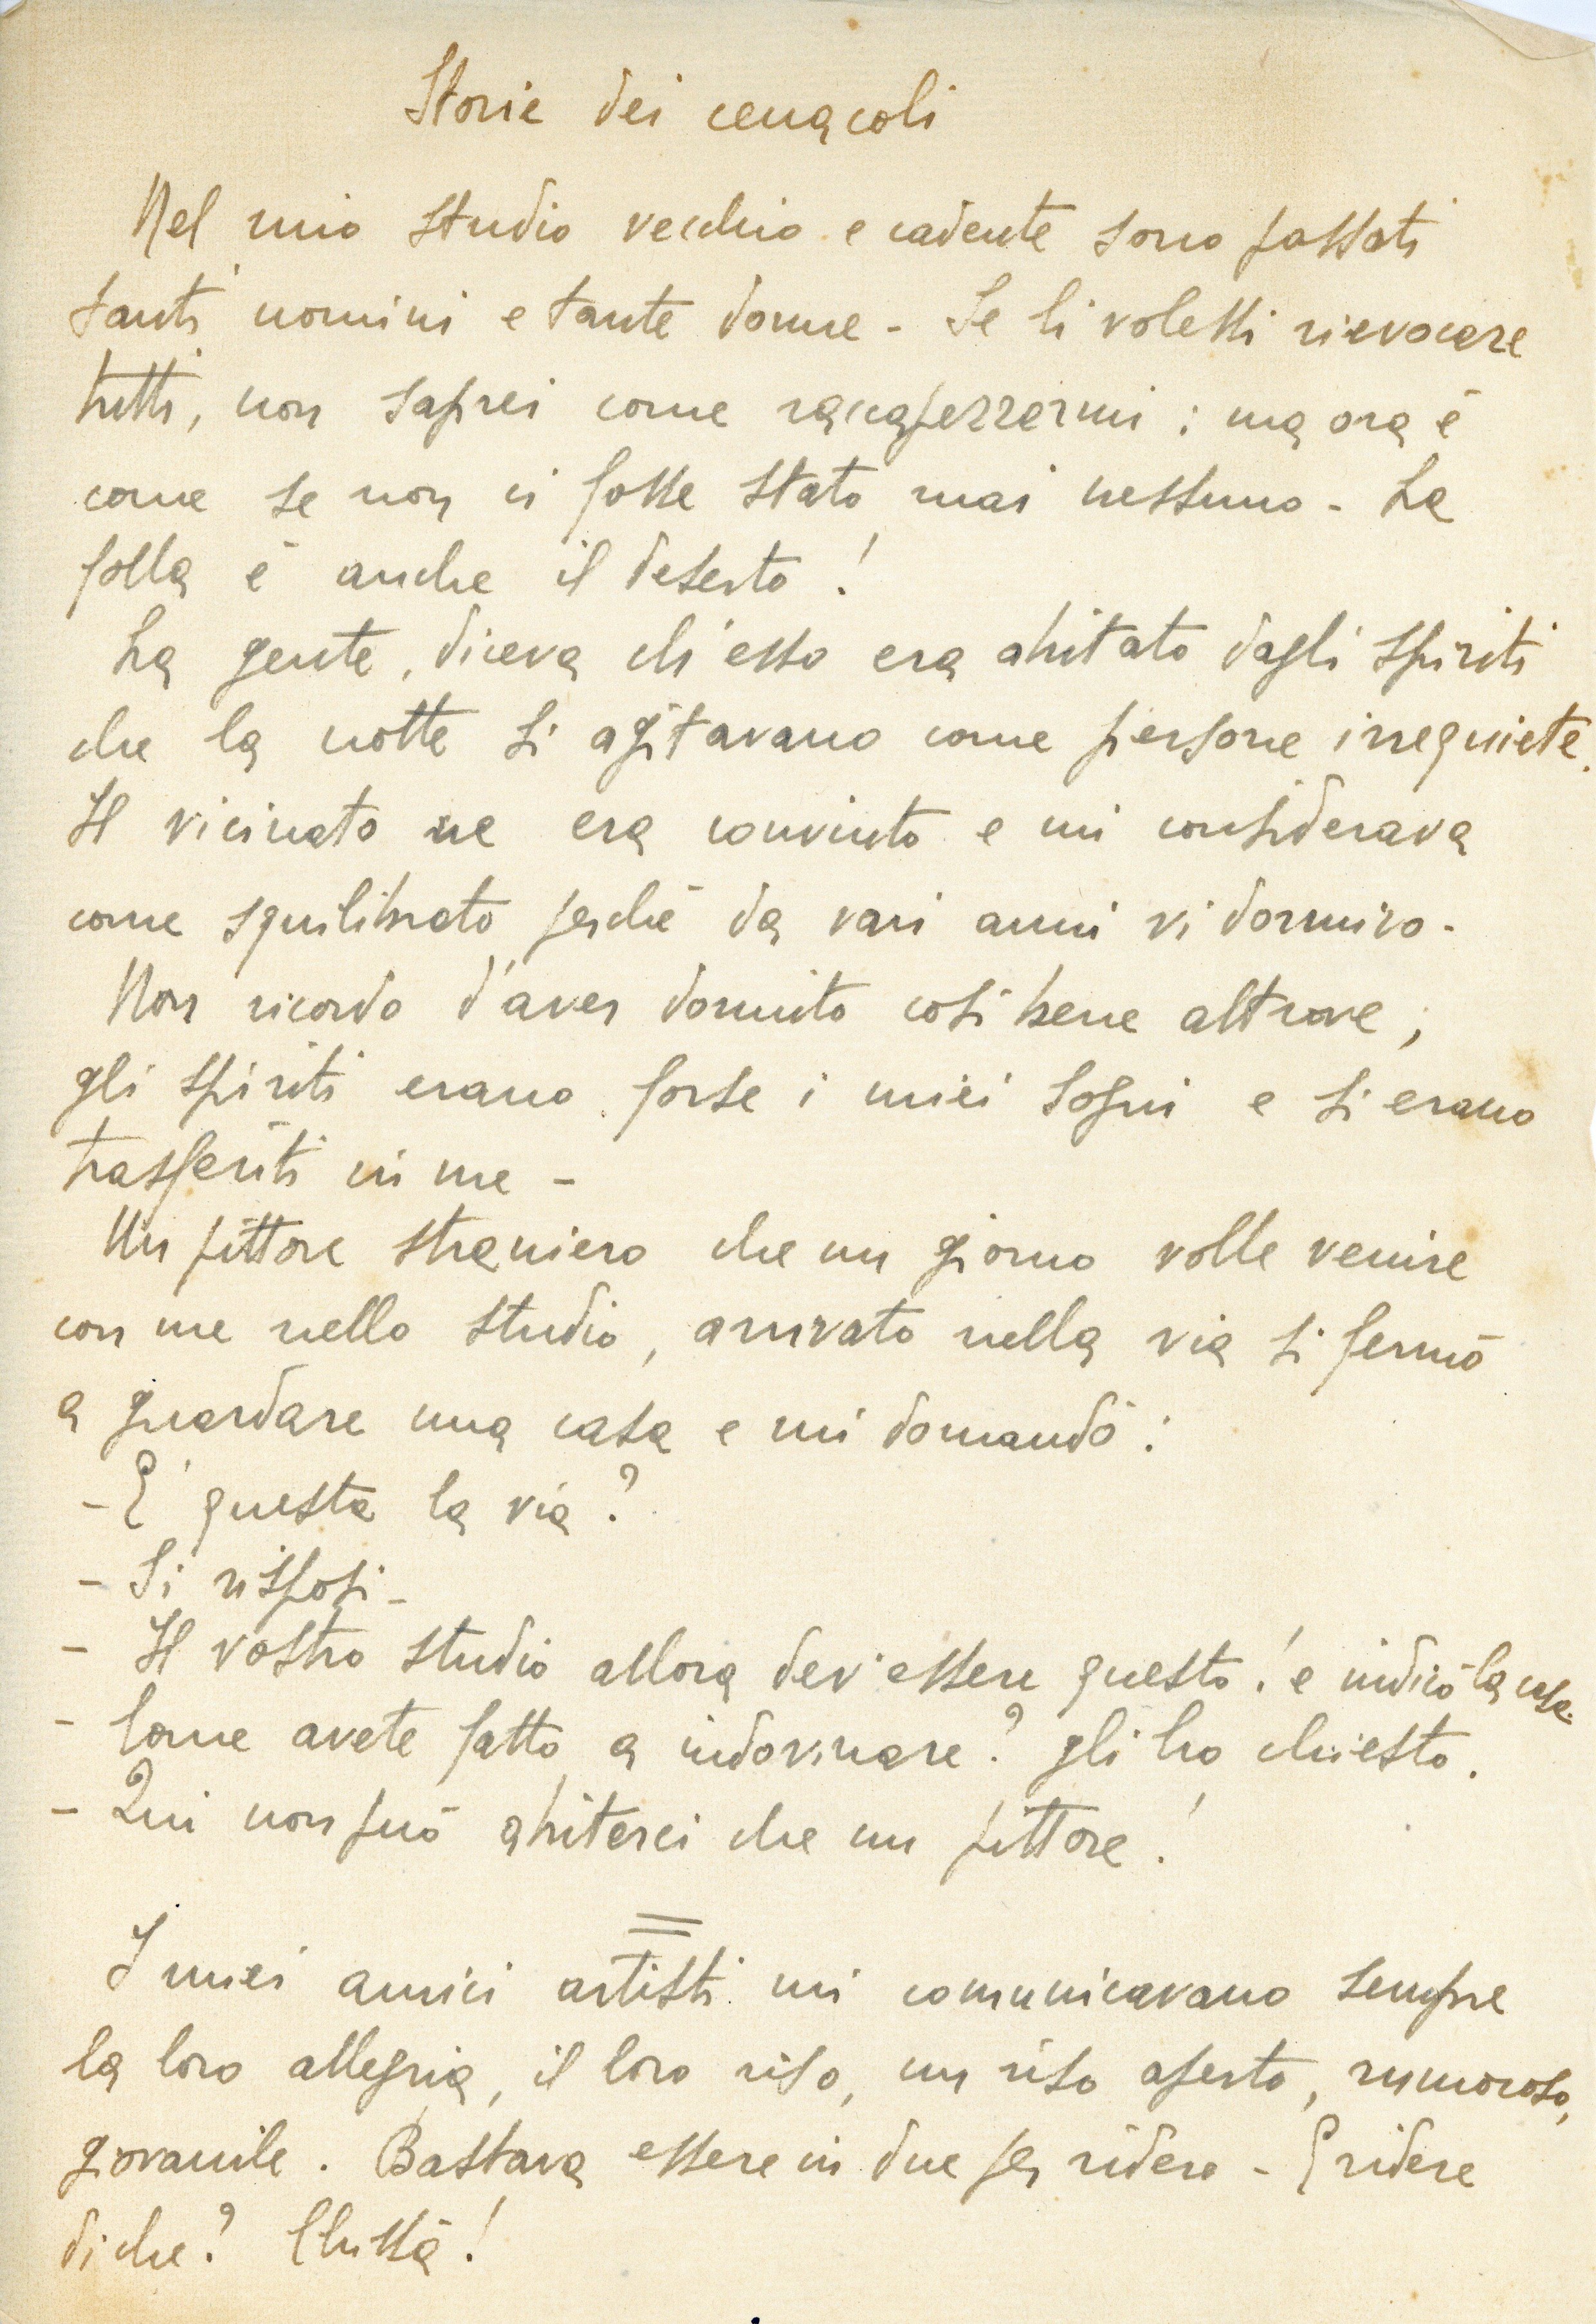 Storie dei cenacoli
Nel mio studio vecchio e cadente sono passati
tanti uomini e tante donne - Se li volessi rievocare
tutti, non saprei come raccapezzarmi : ma ora è
come se non ci fosse stato mai nessuno - La
folla è anche il deserto !
La gente, diceva ch'esso era abitato dagli spiriti
che la notte si agitavano come persone irrequiete.
Il vicinato ne era convinto e mi considerava
come squilibrato perchè da vari anni vi dormivo -
Non ricordo d'aver dormito così bene altrove ;
gli spiriti erano forse i miei sogni e si erano
trasferiti in me -
Un pittore straniero che un giorno volle venire
con me nello studio, arrivato nella via si fermò
a guardare una casa e mi domandò :
- E' questa la via ?
- Si risposi -
- Il vostro studio allora dev'essere questo ! e indicò la casa.
- Come avete fatto a indovinare ? gli ho chiesto.
- Qui non può abitarci che un pittore !
=
I miei amici artisti mi comunicavano sempre
la loro allegria, il loro riso, un riso aperto, rumoroso,
giovanile . Bastava essere in due per ridere - E ridere
di che ? Chissà !